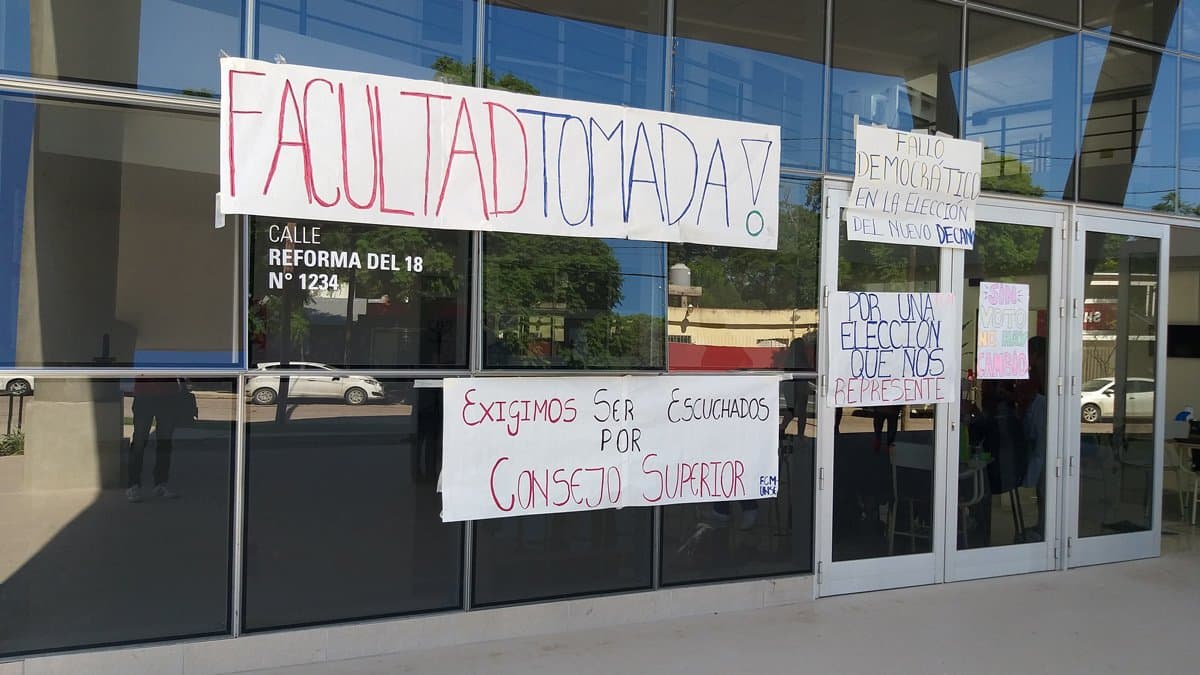 FACULTAD TOMADA!
CALLE
REFORMA DEL 18
N° 1234
FALLÓ
DEMOCRÁTICO
EN LA ELECCIÓN
DEL NUEVO DECANO
POR UNA
ELECCIÓN
QUE NOS
REPRESENTE
SIN
VOTO
NO HAY
CAMBIO
EXIGIMOS SER ESCUCHADOS
POR
CONSEJO SUPERIOR
FCM
UNSE